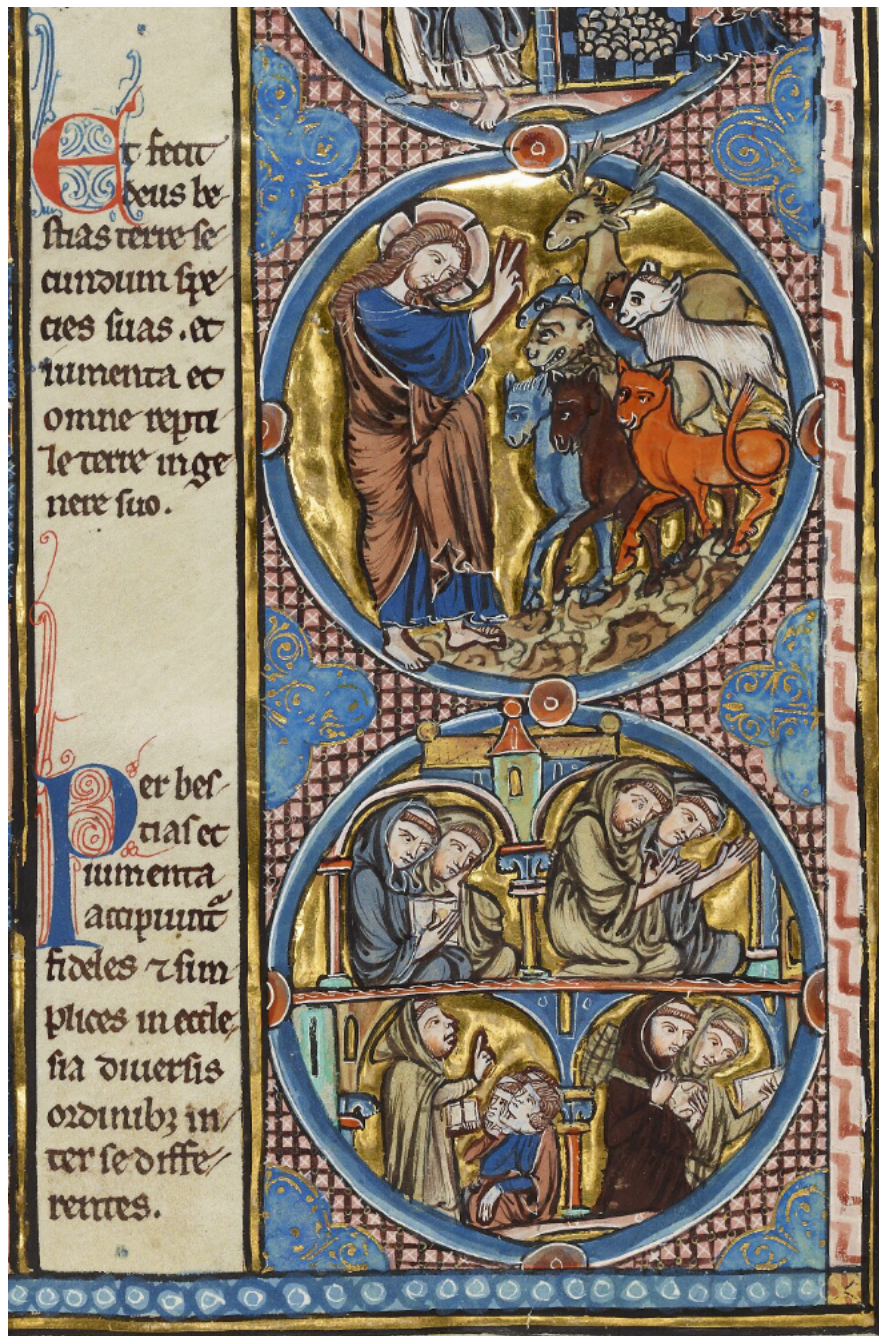 Et fecit
deus be
stias terre se
cundum spe
cies suas. et
iumenta et
omne repti
le terre in ge
nere suo.
Per bes
tias et
iumenta
accipiunt᷑
fideles ⁊ sim
plices in eccle
sia diuersis
ordinibꝫ in
ter se diffe
rentes.